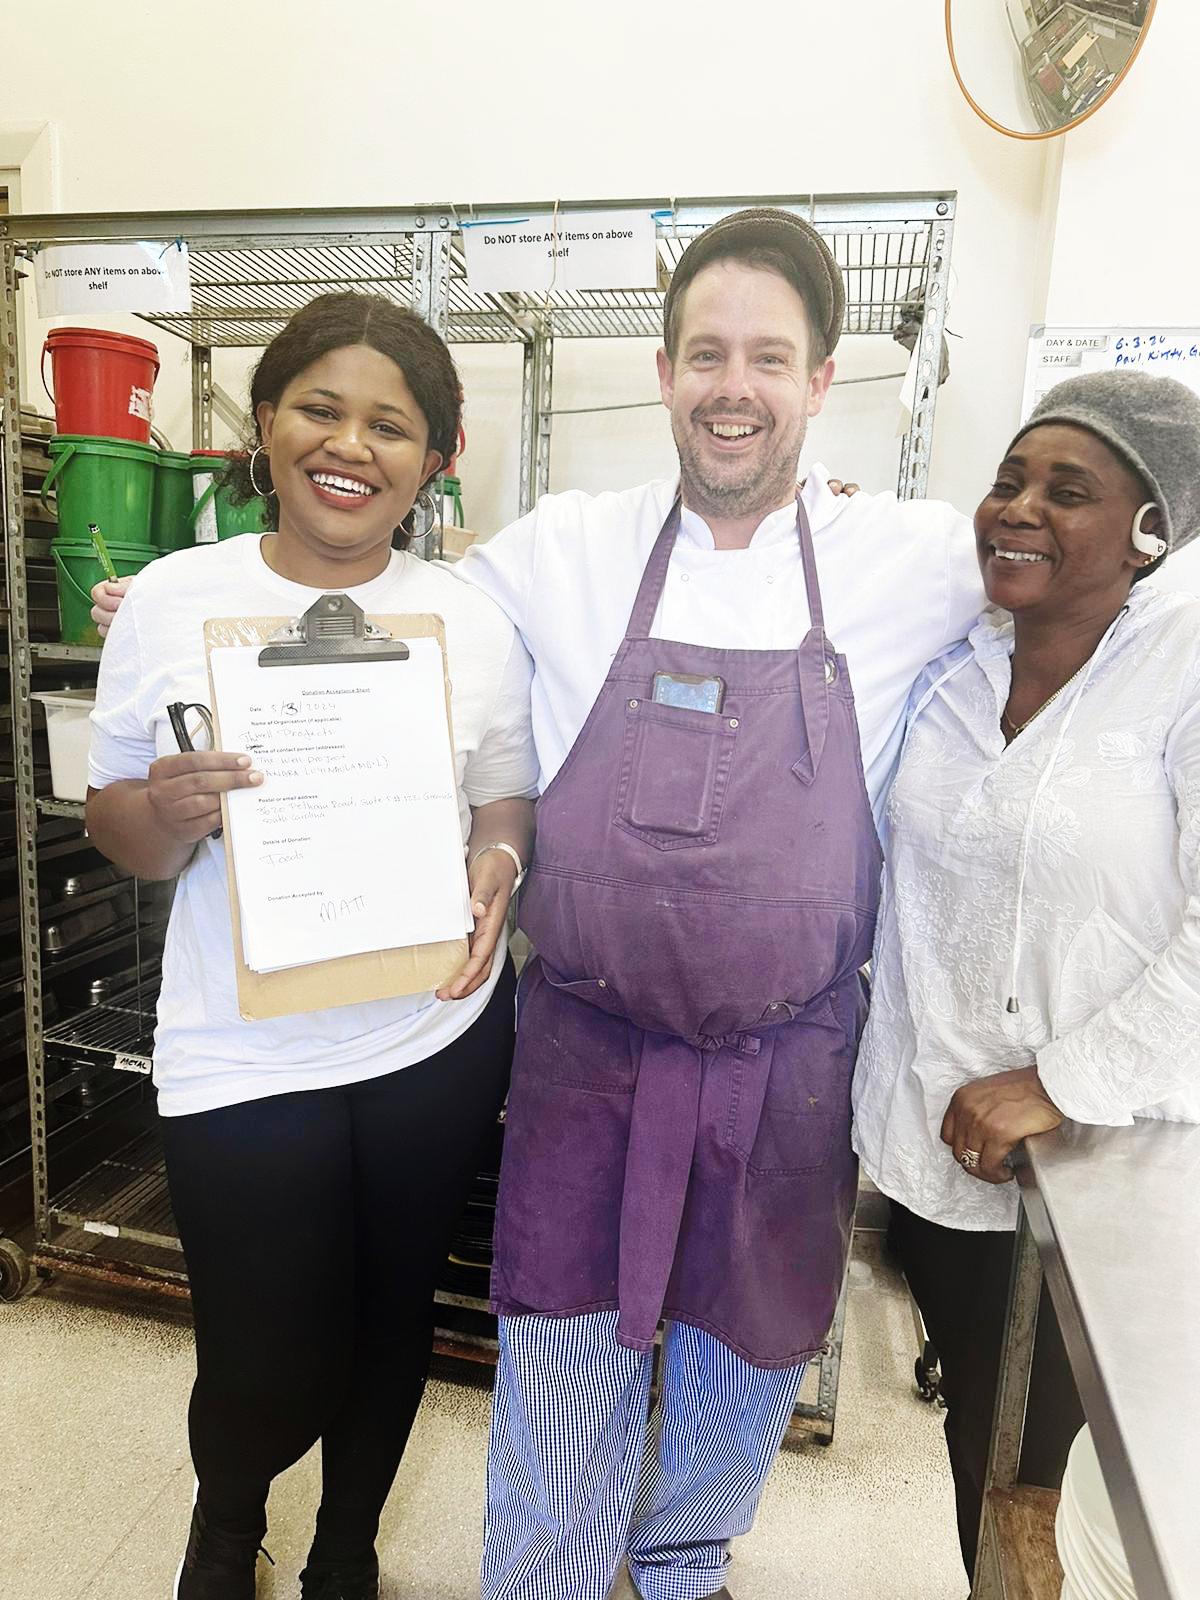 Do NOT store ANY items on above
shelf
Do NOT store ANY items on above
shelf
DAY & DATE 6.3.24
STAFF Paul, Kirsty,
Donation Acceptance Sheet
Date: 5/3/2024
Name of Organisation (if applicable)
Projects
Name of contact person (addressee)
The Well Project
Postal or email address:
3620 Pelham Road, Suite 5 #
South Carolina
Details of Donation:
Foods
Donation Accepted by:
MATT
METAL